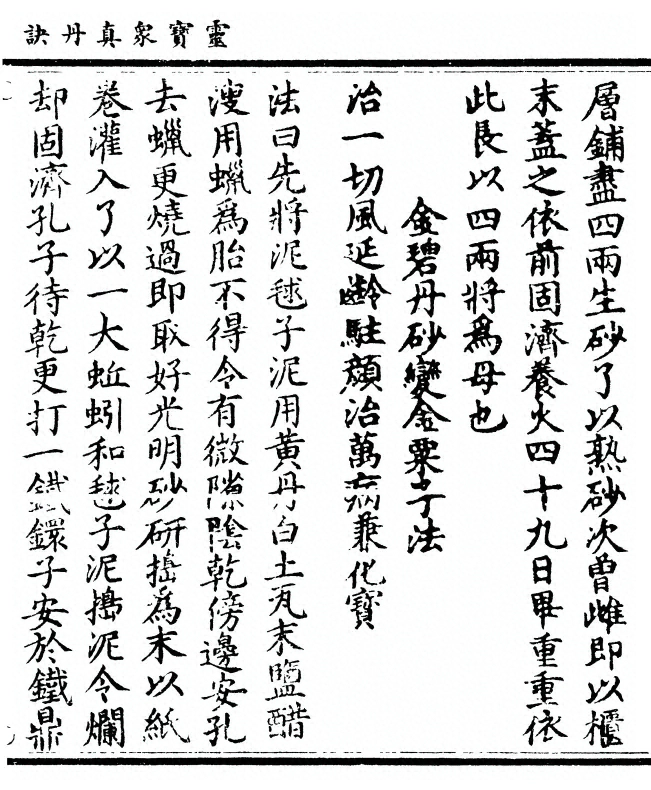 靈寶衆真丹訣
層鋪盡四兩生砂了以熟砂次曾雌即以櫃
末蓋之依前固濟養火四十九日畢重重依
此長以四兩將爲母也
金碧丹砂變金粟子法
治一切風延齡駐顏治萬病兼化寶
法曰先將泥毬子泥用黃丹白土瓦末鹽醋
溲用蠟爲胎不得令有微隙陰乾傍邊安孔
去蠟更燒過即取好光明砂研搗爲末以紙
卷灌入了以一大蚯蚓和毬子泥搗泥令爛
却固濟孔子待乾更打一鐵鐶子安於鐵鼎